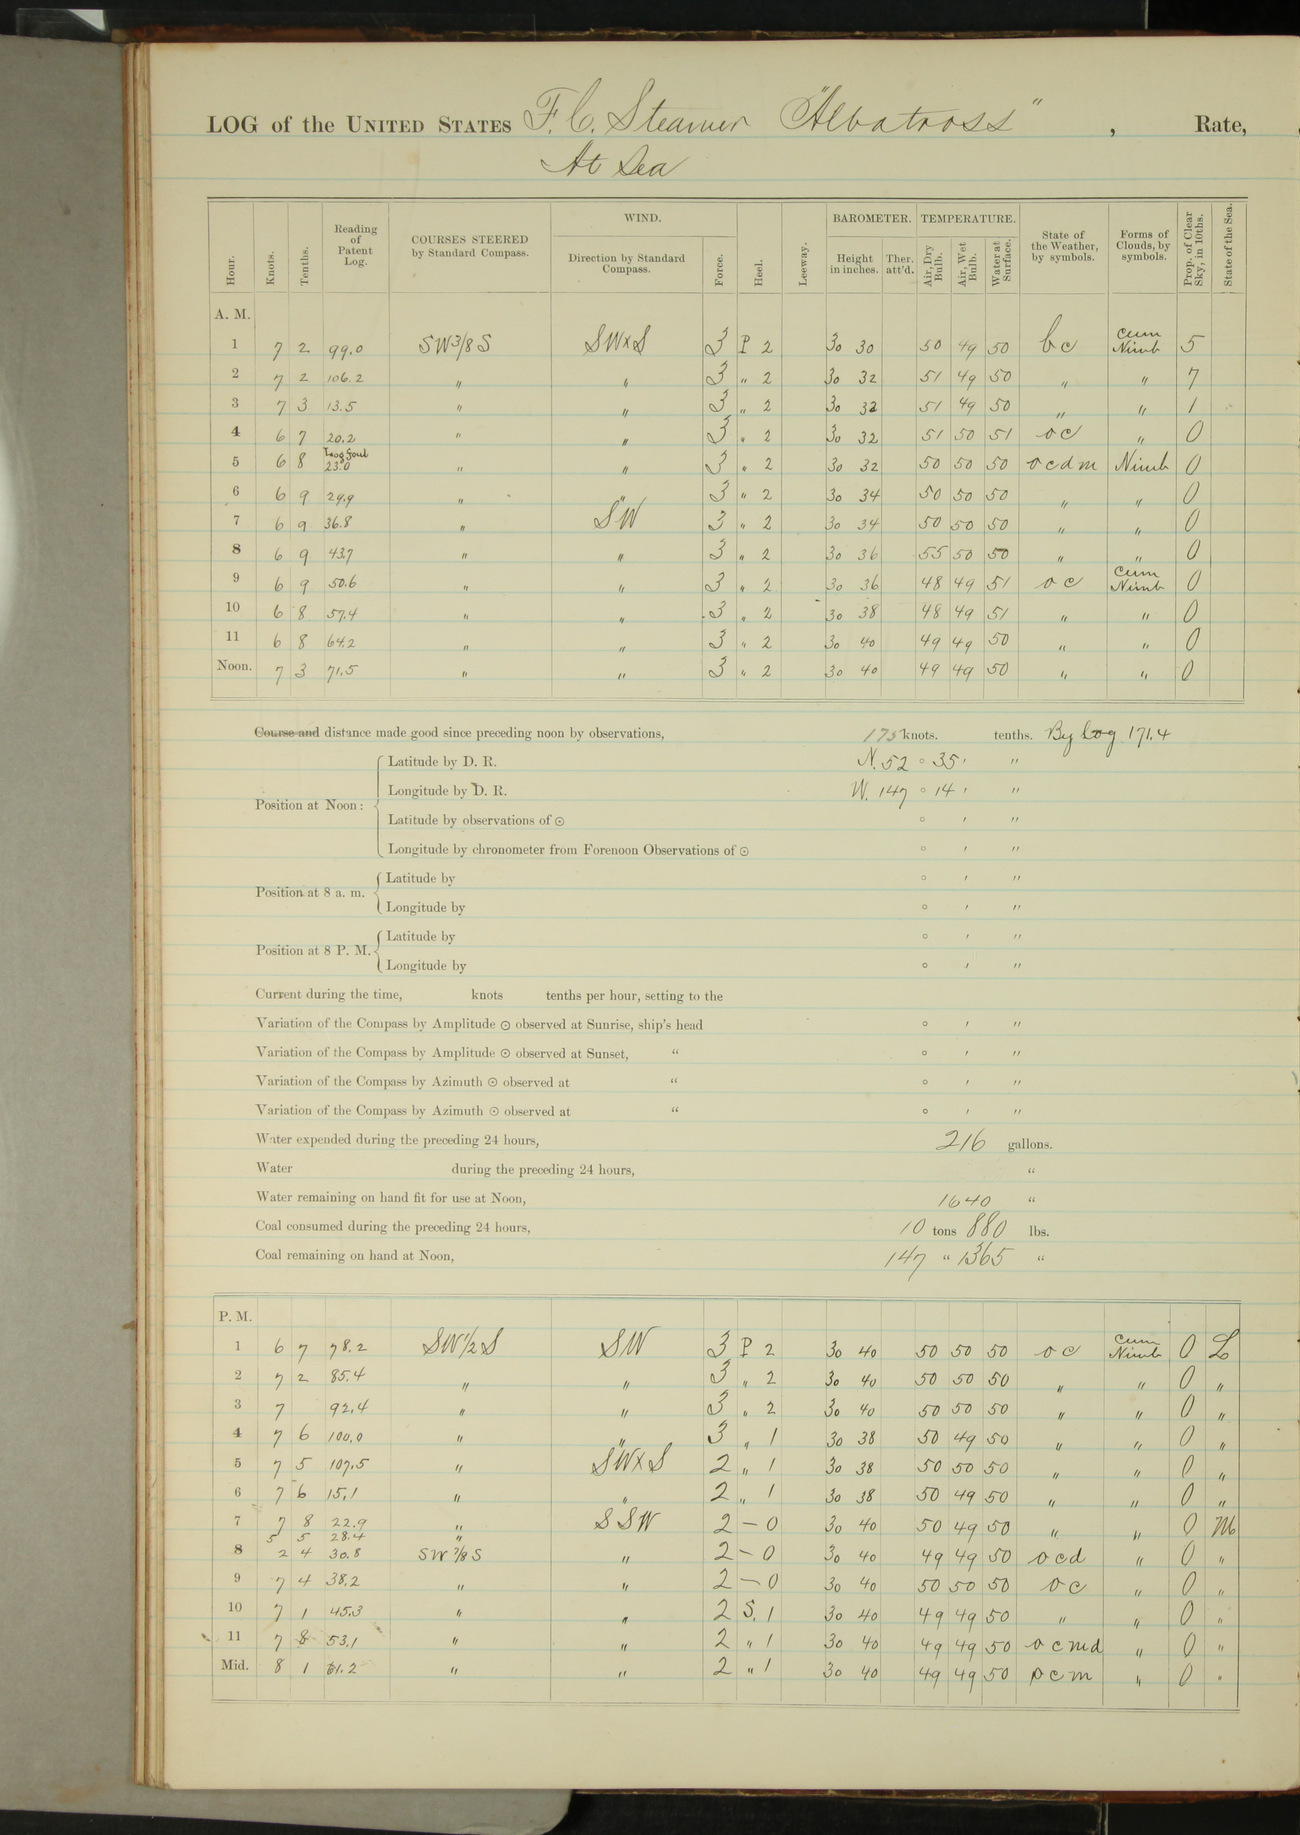 LOG of the UNITED STATES F. C. Steamer "Albatross", Rate,
At Sea
Hour. Knots. Tenths. Reading of Patent Log. COURSES STEERED by Standard Compass. WIND. Direction by Standard Compass. Force. Heel. Leeway. BAROMETER. Height in inches. Ther. att'd. TEMPERATURE. Air, Dry Bulb. Air, Wet Bulb. Water at Surface. State of the Weather, by symbols. Forms of Clouds, by symbols. Prop. of Clear Sky, in 10ths. State of the Sea.
A. M.
1 7 2 99.0 SW 3/8 S SWxS 3 P 2 30 30 50 49 50 bc Cum Nimb 5
2 7 2 106.2 " " 3 " 2 30 32 51 49 50 " " 7
3 7 3 13.5 " " 3 " 2 30 32 51 49 50 " " 1
4 6 7 20.2 " " 3 " 2 30 32 51 50 51 oc " 0
5 6 8 Log foul 23.0 " " 3 " 2 30 32 50 50 50 ocdm Nimb 0
6 6 9 29.9 " " 3 " 2 30 34 50 50 50 " " 0
7 6 9 36.8 " SW 3 " 2 30 34 50 50 50 " " 0
8 6 9 43.7 " " 3 " 2 30 36 55 50 50 " " 0
9 6 9 50.6 " " 3 " 2 30 36 48 49 51 oc Cum Nimb 0
10 6 8 57.4 " " 3 " 2 30 38 48 49 51 " " 0
11 6 8 64.2 " " 3 " 2 30 40 49 49 50 " " 0
Noon. 7 3 71.5 " " 3 " 2 30 40 49 49 50 " " 0
Course and distance made good since preceding noon by observations, 175 knots. tenths. By Log 171.4
Position at Noon:
Latitude by D. R. N. 52 ° 35 ' "
Longitude by D. R. W. 147 ° 14 ' "
Latitude by observations of ☉ ° ' "
Longitude by chronometer from Forenoon Observations of ☉ ° ' "
Position at 8 a. m.
Latitude by ° ' "
Longitude by ° ' "
Position at 8 P. M.
Latitude by ° ' "
Longitude by ° ' "
Current during the time, knots tenths per hour, setting to the
Variation of the Compass by Amplitude ☉ observed at Sunrise, ship's head ° ' "
Variation of the Compass by Amplitude ☉ observed at Sunset, " ° ' "
Variation of the Compass by Azimuth ☉ observed at " ° ' "
Variation of the Compass by Azimuth ☉ observed at " ° ' "
Water expended during the preceding 24 hours, 216 gallons.
Water during the preceding 24 hours, "
Water remaining on hand fit for use at Noon, 1640 "
Coal consumed during the preceding 24 hours, 10 tons 880 lbs.
Coal remaining on hand at Noon, 147 " 1365 "
P. M.
1 6 7 78.2 SW 1/2 S SW 3 P 2 30 40 50 50 50 oc Cum Nimb 0 L
2 7 2 85.4 " " 3 " 2 30 40 50 50 50 " " 0 "
3 7 92.4 " " 3 " 2 30 40 50 50 50 " " 0 "
4 7 6 100.0 " " 3 " 1 30 38 50 49 50 " " 0 "
5 7 5 107.5 " SWxS 2 " 1 30 38 50 50 50 " " 0 "
6 7 6 15.1 " " 2 " 1 30 38 50 49 50 " " 0 "
7 7 8 22.9 " SSW 2 – 0 30 40 50 49 50 " " 0 M
5 5 28.4 "
8 2 4 30.8 SW 7/8 S " 2 – 0 30 40 49 49 50 ocd " 0 "
9 7 4 38.2 " " 2 – 0 30 40 50 50 50 oc " 0 "
10 7 1 45.3 " " 2 S. 1 30 40 49 49 50 " " 0 "
11 7 8 53.1 " " 2 " 1 30 40 49 49 50 ocmd " 0 "
Mid. 8 1 61.2 " " 2 " 1 30 40 49 49 50 ocm " 0 "